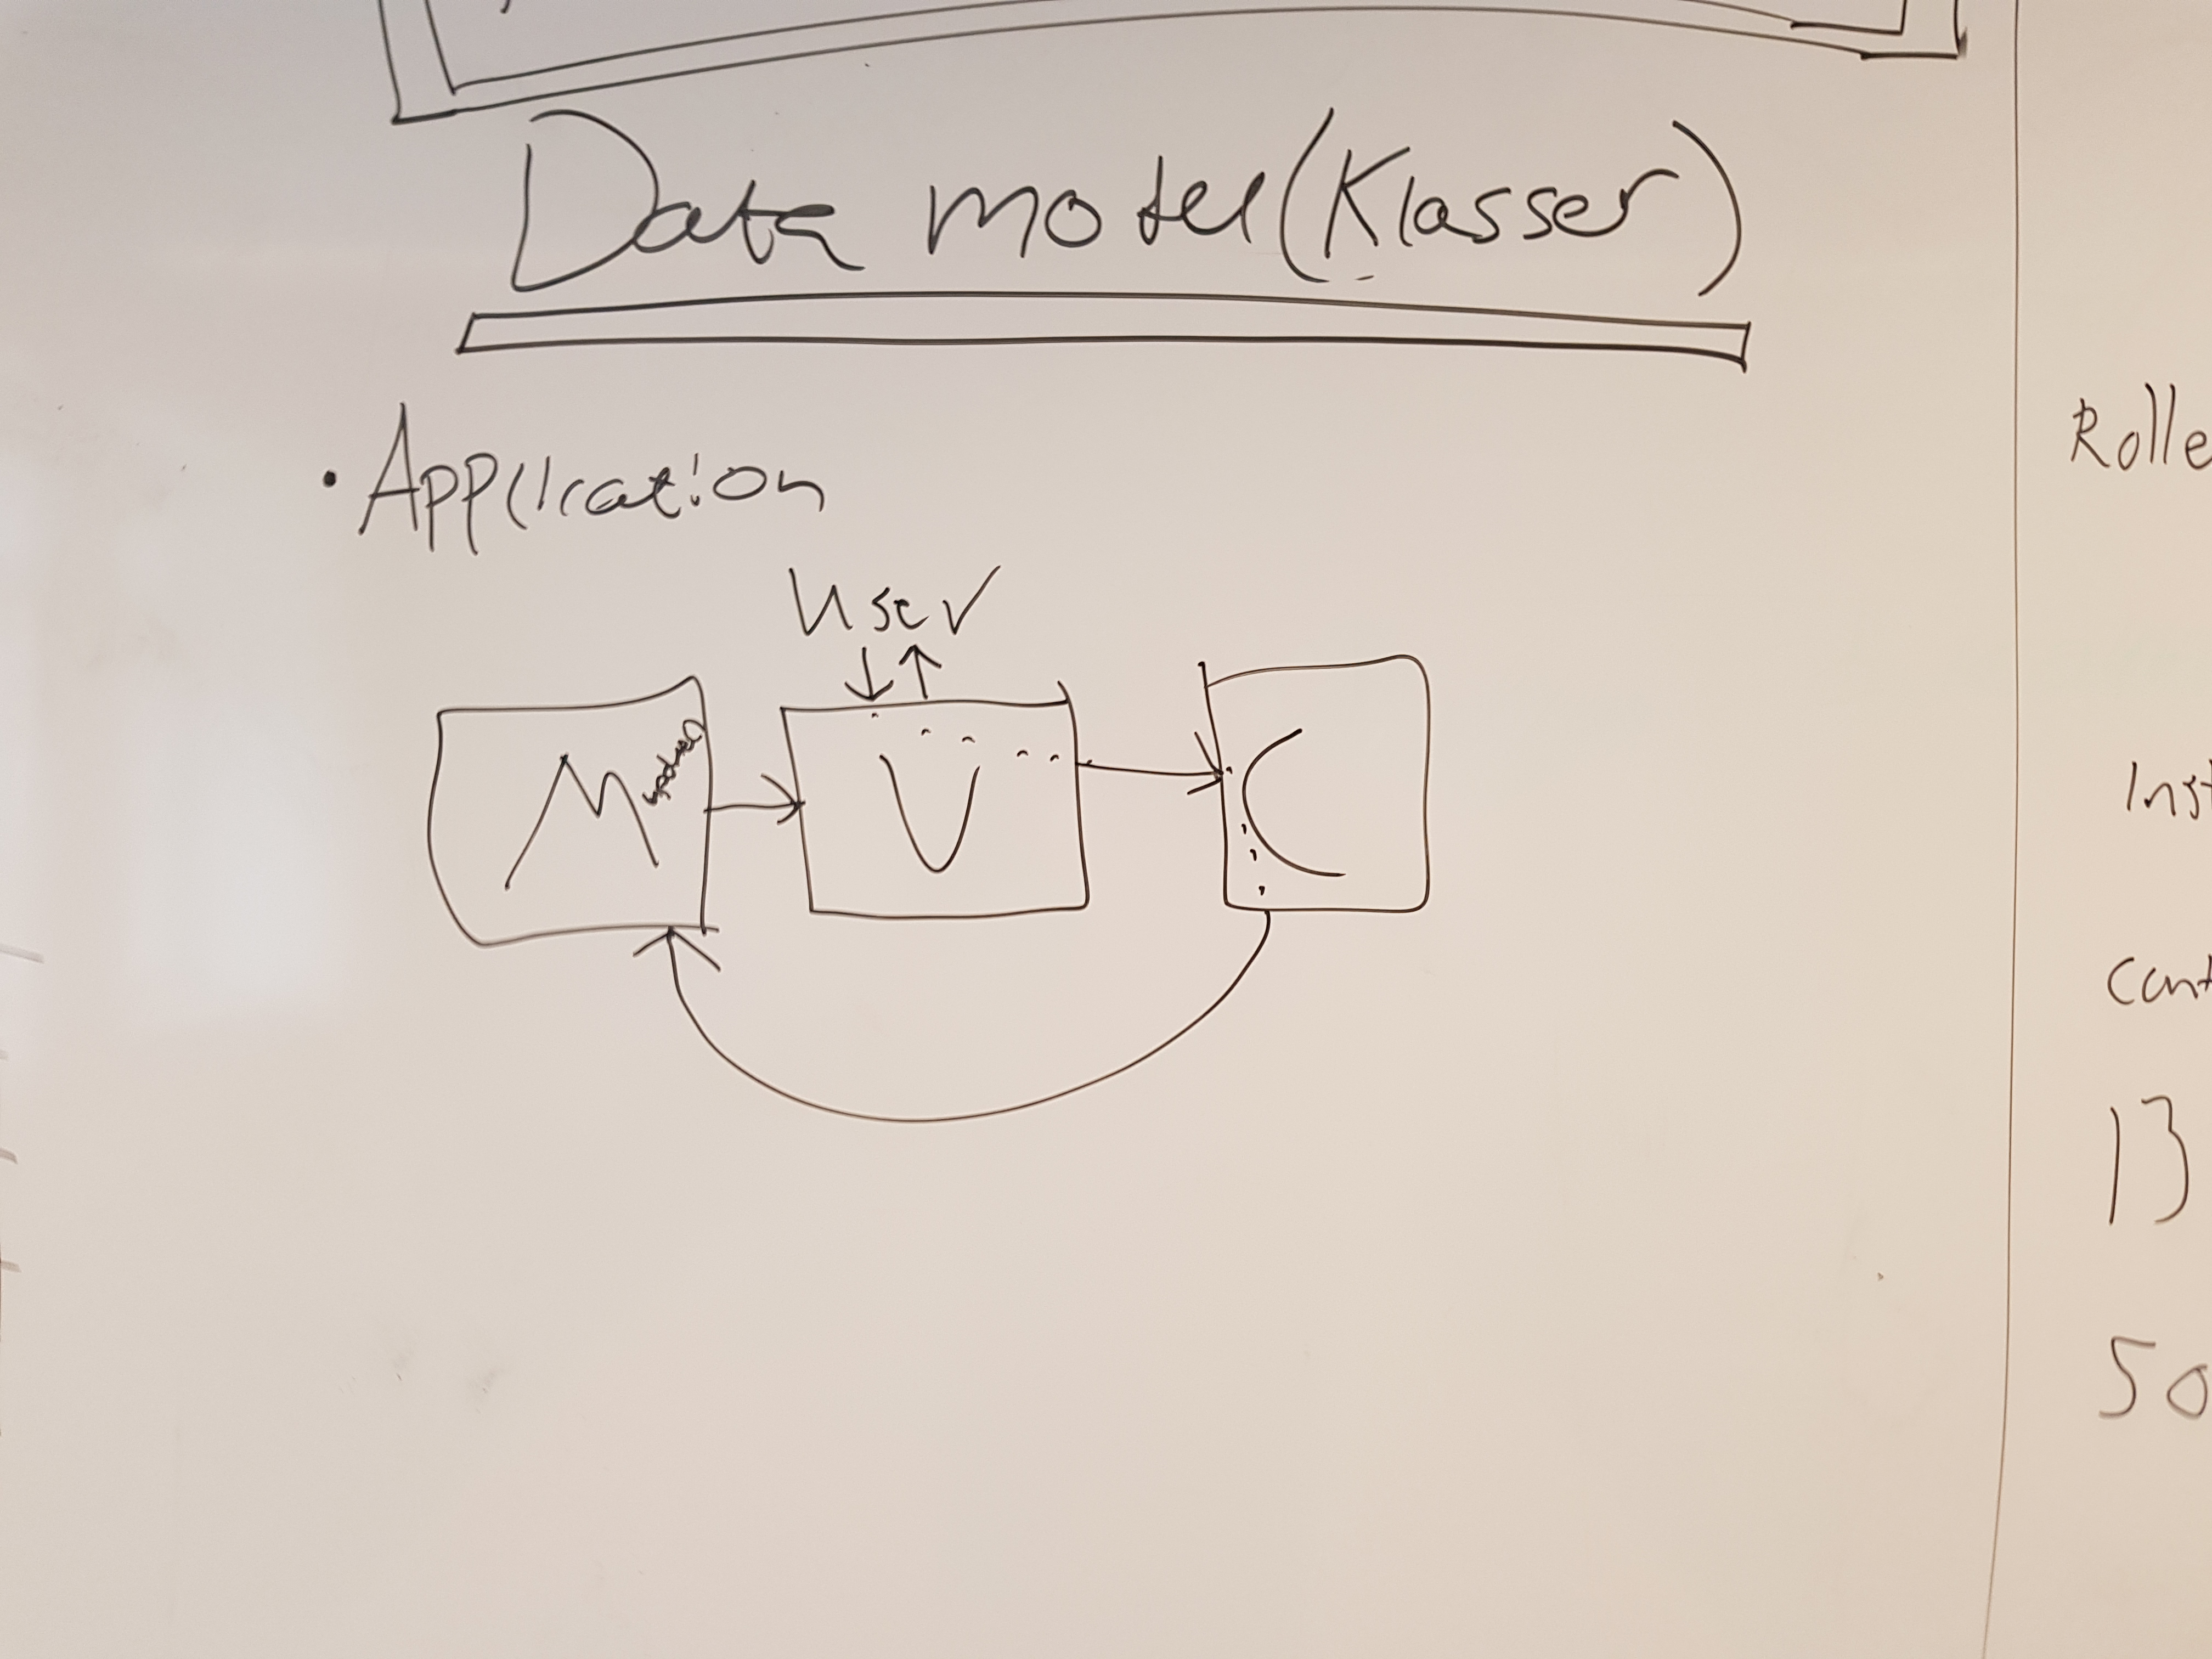 Data model (Klasser)
• Application
User
M
V
C
Rolle
Inst
Cont
13
50